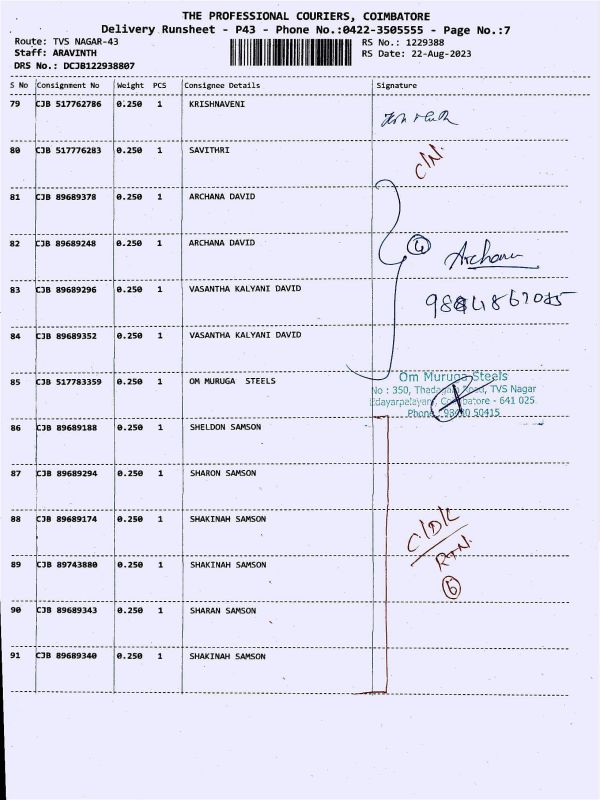 THE PROFESSIONAL COURIERS, COIMBATORE
Delivery Runsheet - P43 - Phone No.:0422-3505555 - Page No.:7
Route: TVS NAGAR-43
RS No.: 1229388
Staff: ARAVINTH
RS Date: 22-Aug-2023
DRS No.: DCJB122938807
S No Consignment No Weight PCS Consignee Details Signature
79 CJB 517762786 0.250 1 KRISHNAVENI
80 CJB 517776283 0.250 1 SAVITHRI
C/N.
81 CJB 89689378 0.250 1 ARCHANA DAVID
82 CJB 89689248 0.250 1 ARCHANA DAVID
4 Archana
83 CJB 89689296 0.250 1 VASANTHA KALYANI DAVID
84 CJB 89689352 0.250 1 VASANTHA KALYANI DAVID
85 CJB 517783359 0.250 1 OM MURUGA STEELS
Om Muruga Steels
No : 350, Road, TVS Nagar
Edayarpalayam, Coimbatore - 641 025
Phone 50415
86 CJB 89689188 0.250 1 SHELDON SAMSON
87 CJB 89689294 0.250 1 SHARON SAMSON
88 CJB 89689174 0.250 1 SHAKINAH SAMSON
C/D/L
RTN.
6
89 CJB 89743880 0.250 1 SHAKINAH SAMSON
90 CJB 89689343 0.250 1 SHARAN SAMSON
91 CJB 89689340 0.250 1 SHAKINAH SAMSON